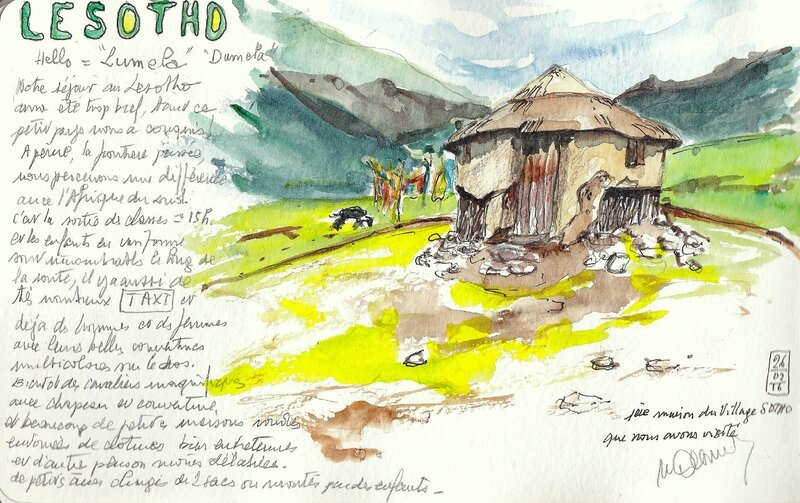 LESOTHO
Hello = "Lumela" "Dumela"
Notre séjour au Lesotho
aura été trop bref, tant ce
petit pays nous a conquis.
A peine, la frontière passée,
nous percevons une différence
avec l'Afrique du sud.
c'est la sortie des classes = 15h.
et les enfants en uniforme
sont innombrables le long de
la route, il y a aussi de
très nombreux TAXI et
déjà des hommes et des femmes
avec leurs belles couvertures
multicolores sur le dos.
Bientôt des cavaliers magnifiques
avec chapeau et couverture,
et beaucoup de petites maisons rondes
entourées de clotures bien entretenues
et d'autres
de petits ânes chargés de 2 sacs ou montés par des enfants -
26
02
16
1ère maison du Village SOTHO
que nous avons visité